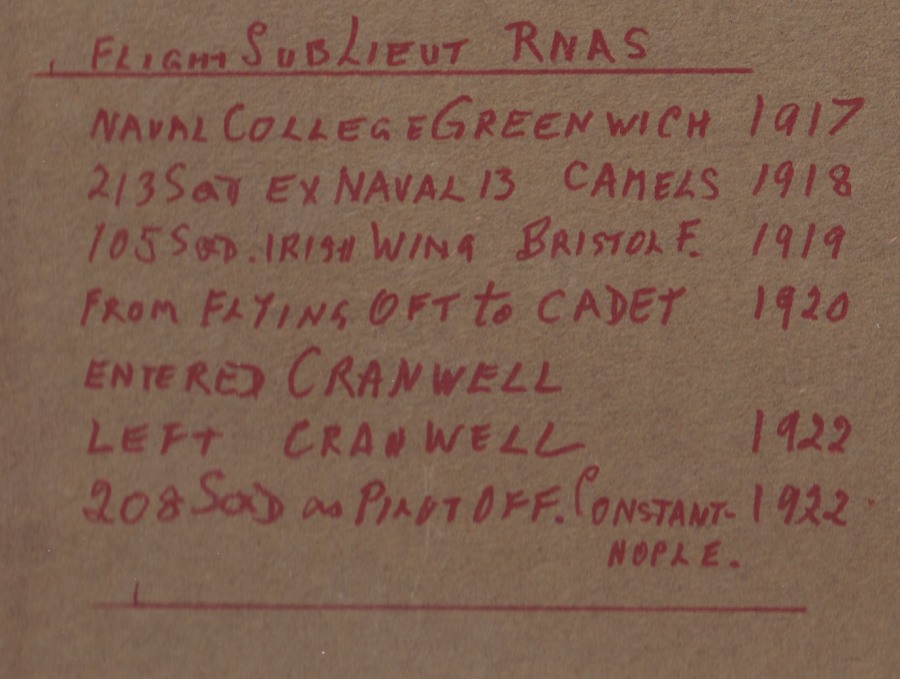 FLIGHT SUB LIEUT RNAS
NAVAL COLLEGE GREENWICH 1917
213 SQD EX NAVAL 13 CAMELS 1918
105 SQD. IRISH WING BRISTOL F. 1919
FROM FLYING OFT to CADET 1920
ENTERED CRANWELL
LEFT CRANWELL 1922
208 SQD as PILOT OFF. CONSTANT- 1922
NOPLE.